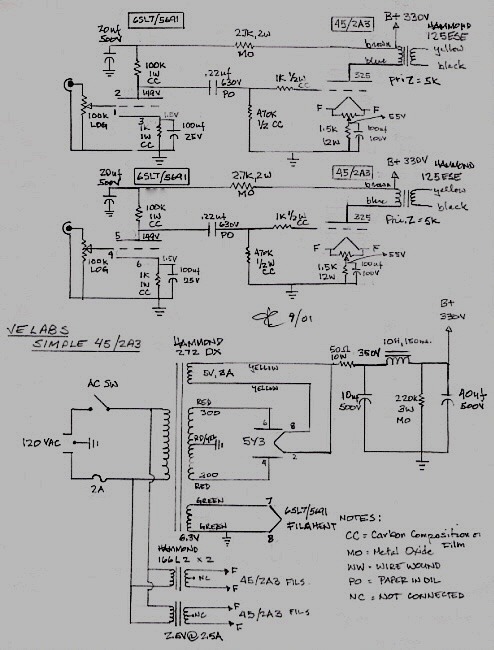 6SL7/5691
45/2A3
B+ 330V
HAMMOND
125ESE
20uf
500V
2.7K, 2W
MO
brown
yellow
blue
black
Pri Z = 5K
100K
1W
CC
.22uf
630V
PO
1K ½W
CC
325
2
149V
1
3
1.5V
100K
LOG
1K
1W
CC
100uf
25V
470K
1/2 CC
F
F
55V
1.5K
12W
100uf
100V
6SL7/5691
45/2A3
B+ 330V
HAMMOND
125ESE
20uf
500V
2.7K, 2W
MO
brown
yellow
blue
black
Pri. Z = 5K
100K
1W
CC
.22uf
630V
PO
1K ½W
CC
325
5
149V
4
6
1.5V
100K
LOG
1K
1W
CC
100uf
25V
470K
1/2W
CC
F
F
55V
1.5K
12W
100uf
100V
9/01
VE LABS
SIMPLE 45/2A3
HAMMOND
272 DX
B+
330V
AC SW
120 VAC
2A
YELLOW
5V, 3A
YELLOW
RED
300
300
RED
5Y3
6
8
4
2
50Ω
10W
350V
10H, 150ma.
10uf
500V
220K
3W
MO
40uf
500V
GREEN
7
GREEN
8
6.3V
6SL7/5691
FILAMENT
HAMMOND
166L2 x 2
NC
F
F
45/2A3 FILS.
NC
F
F
45/2A3 FILS
2.5V @ 2.5A
NOTES:
CC = Carbon Composition or
Film
MO = Metal Oxide
WW = WIRE WOUND
PO = PAPER IN OIL
NC = NOT CONNECTED